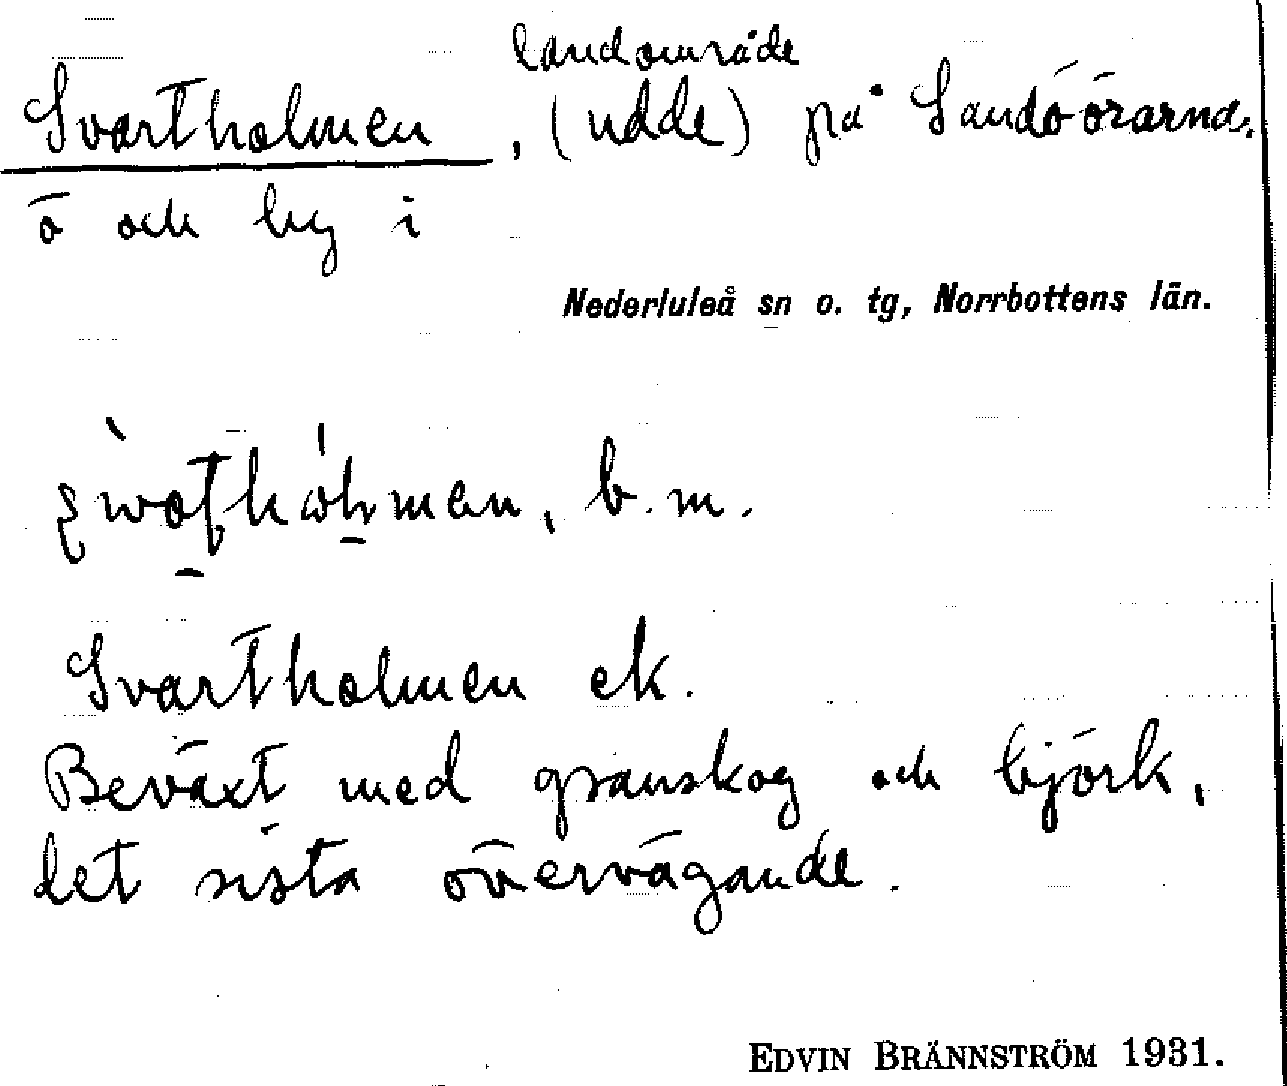 landområde
Svartholmen, (udde) på Sandöörarna,
ö och by i
Nederluleå sn o. tg, Norrbottens län.
b. m.
Svartholmen ek.
Beväxt med granskog och björk,
det sista övervägande.
EDVIN BRÄNNSTRÖM 1931.